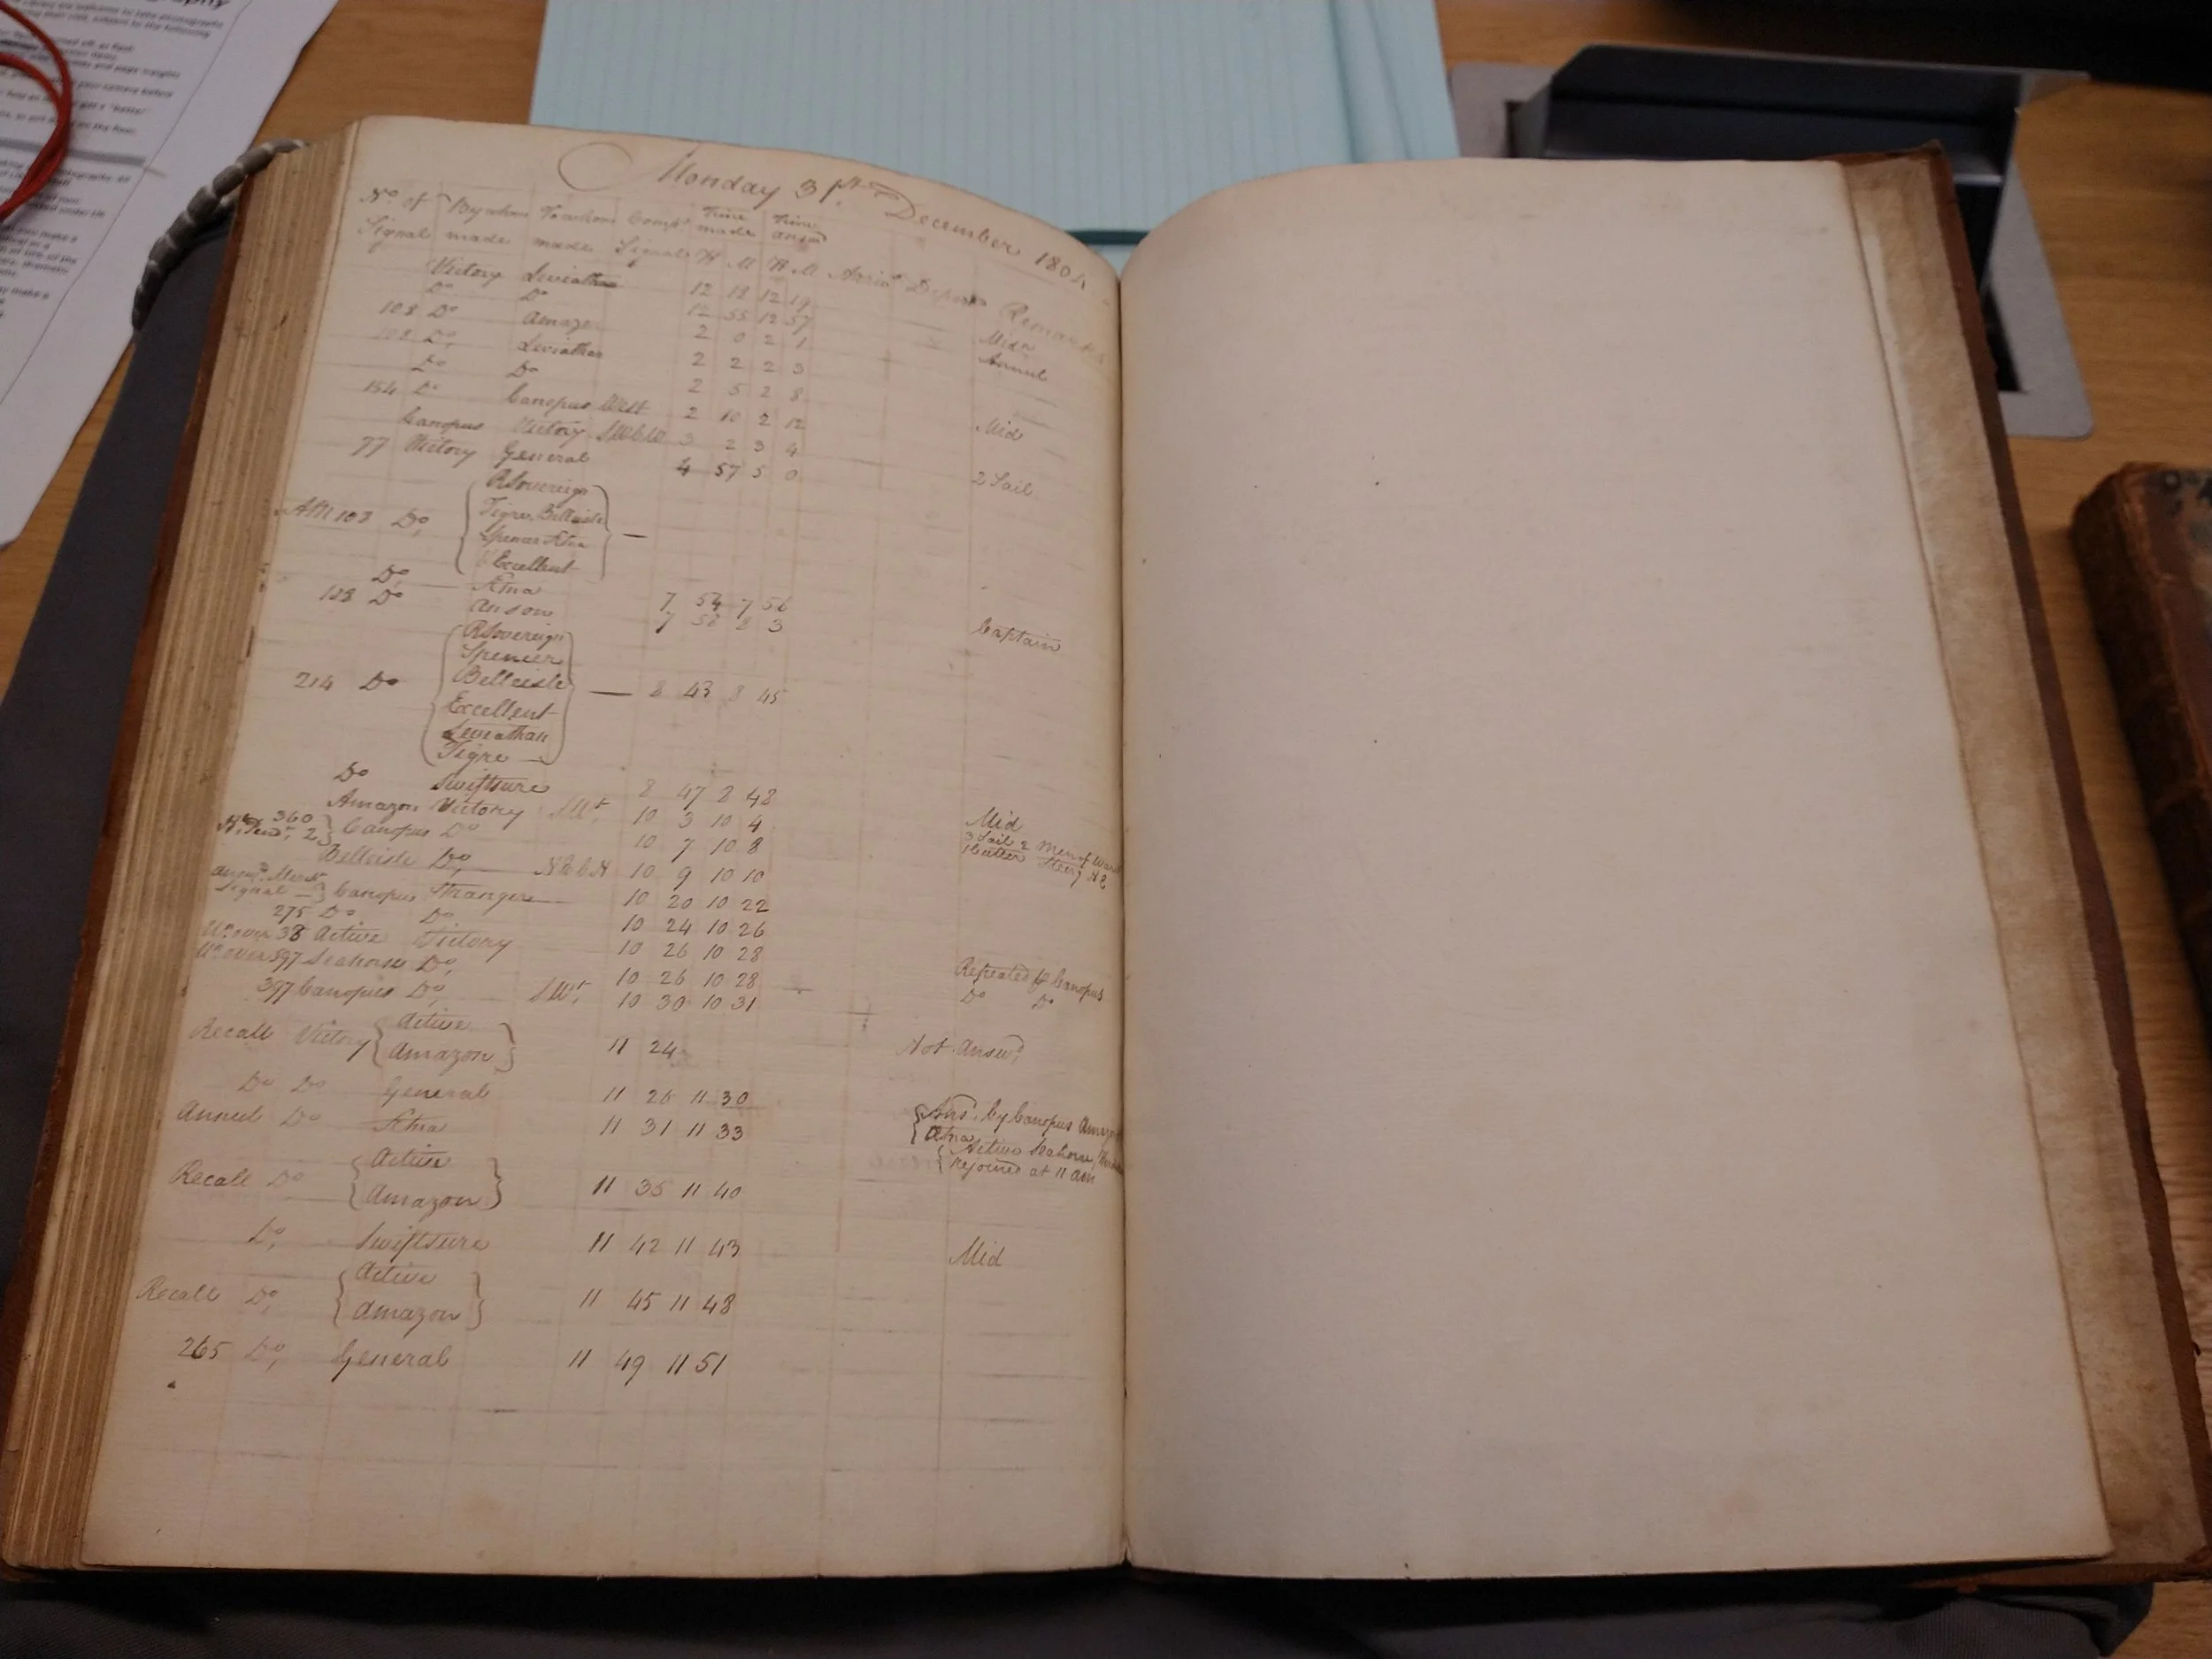 Monday 31st. December 1804
No. of By whom To whom Comps. Time Time
Signal made made Signal made answd
H M H M Arrivd Depar Remarks
Victory Leviathan 12 18 12 19 Midn
Do Do 12 55 12 57 Annul
108 Do Amazon 2 0 2 1
108 Do, Leviathan 2 2 2 3
Do Do 2 5 2 8 Mid
154 Do Canopus West 2 10 2 12
Canopus Victory SWbW 3 2 3 4 2 Sail
77 Victory General 4 57 5 0
RSovereign
AM 103 Do, Tigre, Belleisle
Spencer Etna
Excellent
Do, Etna 7 54 7 56
188 Do Anson 7 58 8 3 Captain
RSovereign
Spencer
214 Do Belleisle 8 43 8 45
Excellent
Leviathan
Tigre
Do Swiftsure 8 47 8 48 Mid
Amazon Victory SWt. 10 3 10 4 3 Sail 2 Men of War
360 Canopus Do 10 7 10 8 1 Cutter Steerg NE
2
Belleisle Do, NEbN 10 9 10 10
answd. Mercht
Signal Canopus Strangers 10 20 10 22
275 Do Do 10 24 10 26
Un. over 38 Active Victory 10 26 10 28 Repeated by Canopus
Un. over 397 Seahorse Do, 10 26 10 28 Do Do
397 Canopus Do, SWt. 10 30 10 31
Recall Victory Active 11 24 Not Answd,
Amazon
Do Do General 11 26 11 30 Ans. by Canopus Amazon
Annul Do Etna 11 31 11 33 Etna
Active Seahorse
Recall Do Active 11 36 11 40 rejoined at 11 am
Amazon
Do, Swiftsure 11 42 11 43 Mid
Recall Do, Active 11 45 11 48
Amazon
265 Do, General 11 49 11 51